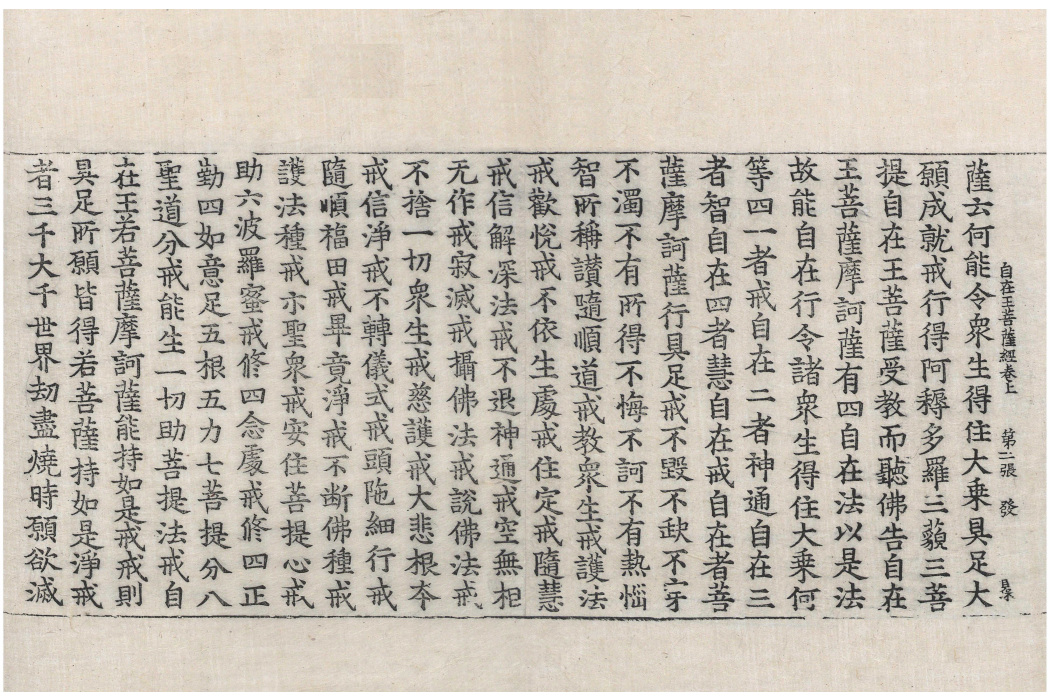 自在王菩薩經卷上　第二張　發
薩云何能令衆生得住大乗具足大
願成就戒行得阿耨多羅三藐三菩
提自在王菩薩受教而聽佛告自在
王菩薩摩訶薩有四自在法以是法
故能自在行令諸衆生得住大乗何
等四一者戒自在二者神通自在三
者智自在四者慧自在戒自在者菩
薩摩訶薩行具足戒不毀不缺不穿
不濁不有所得不悔不訶不有熱惱
智所稱讃隨順道戒教衆生戒護法
戒歡悅戒不依生處戒住定戒隨慧
戒信解深法戒不退神通戒空無相
无作戒寂滅戒攝佛法戒說佛法戒
不捨一切衆生戒慈護戒大悲根夲
戒信淨戒不轉儀式戒頭陁細行戒
隨順福田戒畢竟淨戒不断佛種戒
護法種戒亦聖衆戒安住菩提心戒
助六波羅蜜戒修四念處戒修四正
勤四如意足五根五力七菩提分八
聖道分戒能生一切助菩提法戒自
在王若菩薩摩訶薩能持如是戒戒則
具足所願皆得若菩薩持如是淨戒
者三千大千世界劫盡燒時願欲滅